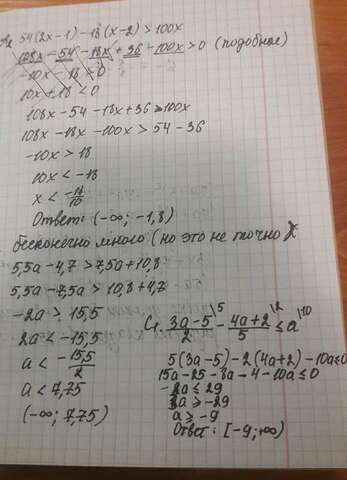 54(2x-1)-18(x-2)>100x
108x-54-18x+36-100x>0 (подобное)
-10x-18>0
10x+18<0
108x-54-18x+36>100x
108x-18x-100x>54-36
-10x>18
10x<-18
x<-18/10
Ответ: (-∞; -1,8)
бесконечно много (но это не точно
5,5a-4,7>7,5a+10,8
5,5a-7,5a>10,8+4,7
-2a>15,5
2a<-15,5
a<-15,5/2
a<7,75
(-∞; 7,75)
C1. 3a-5/2 \5 - 4a+2/5 \2 ≤ a \10
5(3a-5)-2(4a+2)-10a≤0
15a-25-8a-4-10a≤0
a≥-9
Ответ: [-9;+∞)